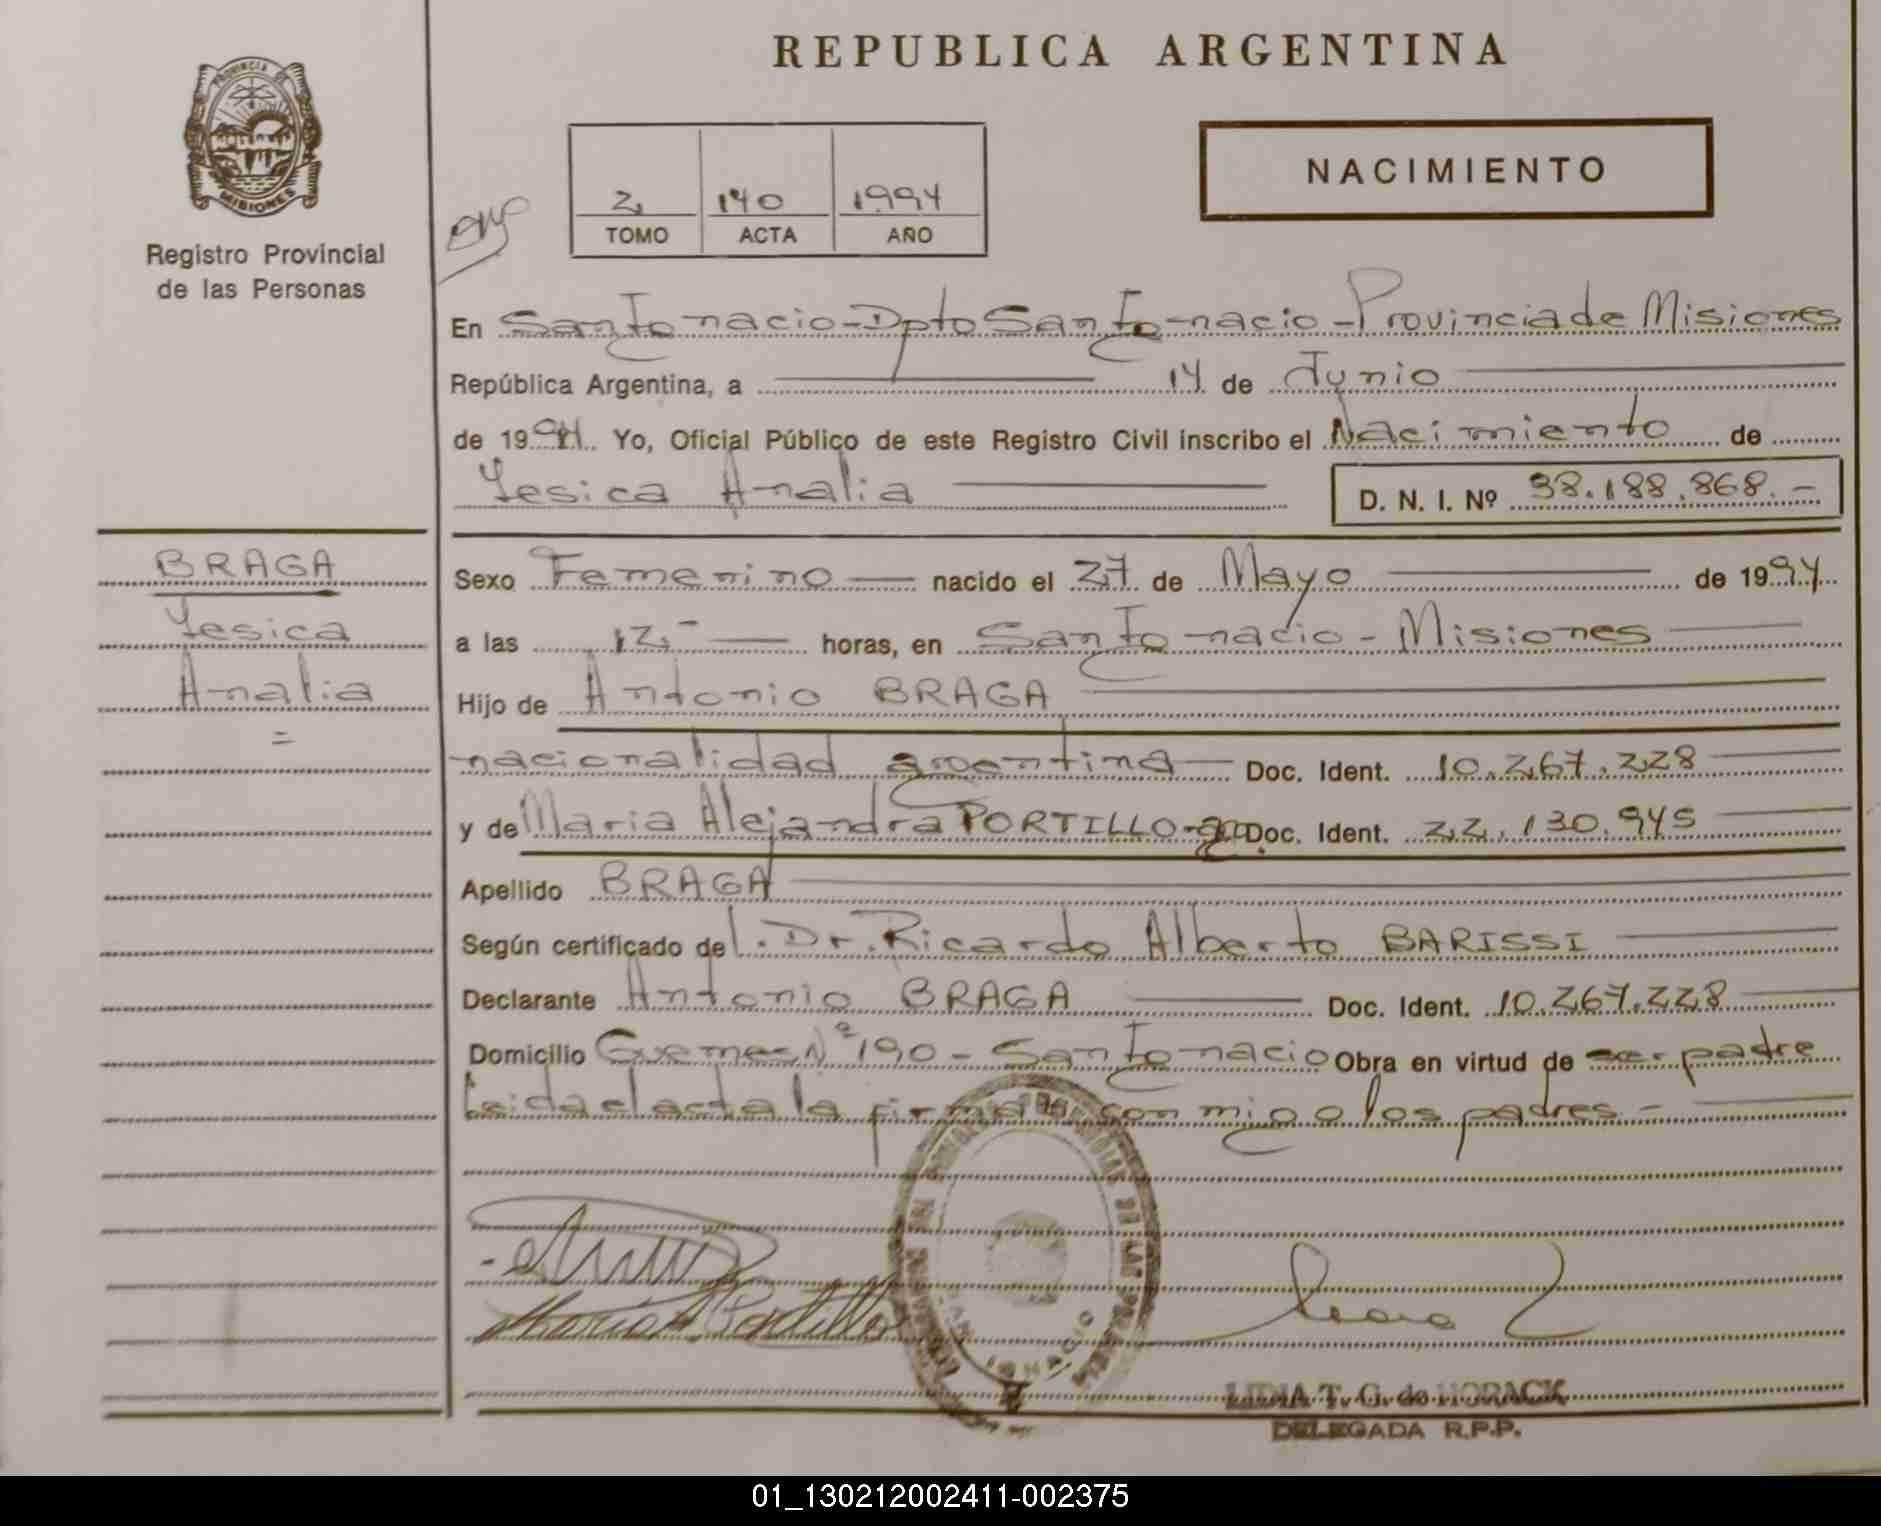 REPUBLICA ARGENTINA
PROVINCIA DE
MISIONES
Registro Provincial
de las Personas
2 140 1994
TOMO ACTA AÑO
NACIMIENTO
En San Ignacio - Dpto San Ignacio - Provincia de Misiones
República Argentina, a 14 de Junio
de 1994. Yo, Oficial Público de este Registro Civil inscribo el Nacimiento de
Yesica Analia D. N. I. Nº 38.188.868.-
BRAGA
Yesica
Analia
=
Sexo Femenino nacido el 27 de Mayo de 1994
a las 12.- horas, en San Ignacio - Misiones
Hijo de Antonio BRAGA
nacionalidad argentina Doc. Ident. 10.267.228
y de Maria Alejandra PORTILLO - Doc. Ident. 22.130.945
Apellido BRAGA
Según certificado de l. Dr. Ricardo Alberto BARISSI
Declarante Antonio BRAGA Doc. Ident. 10.267.228
Domicilio Guemes Nº 190 - San Ignacio Obra en virtud de ser padre
Leida el acta la firman conmigo los padres.-
Maria A. Portillo
IGNACIO
LIDIA T. G. de HORACK
DELEGADA R.P.P.
01_130212002411-002375